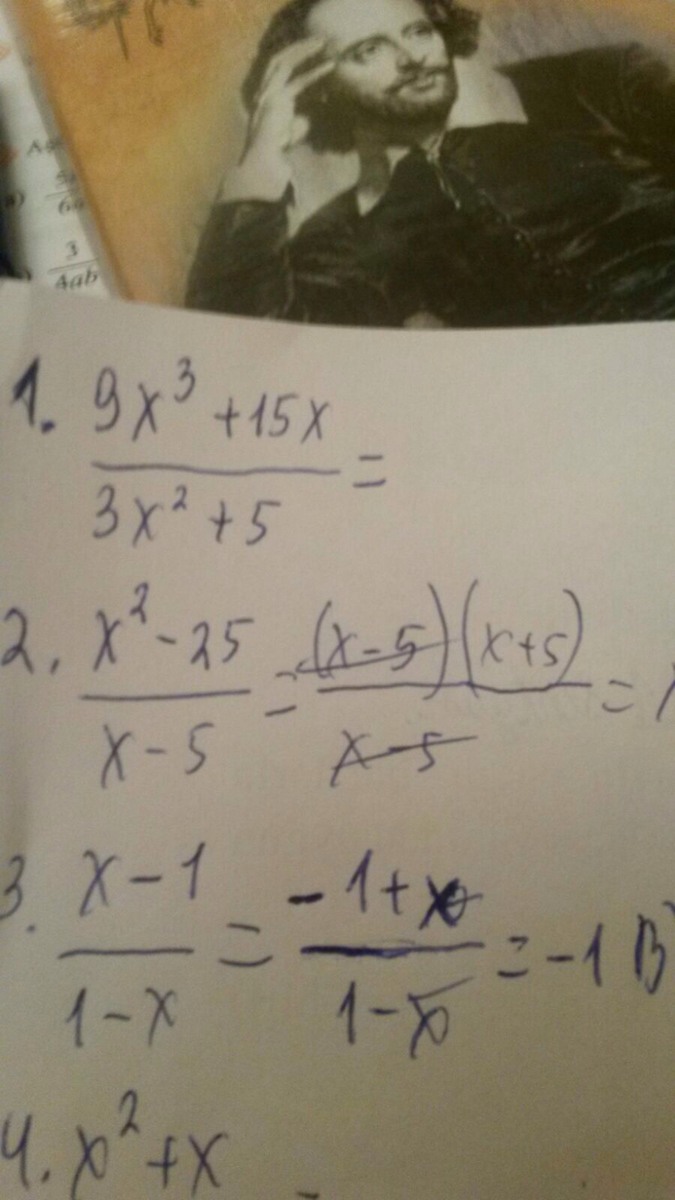 3
4ab
1. (9x³ + 15x)/(3x² + 5) =
2. (x² - 25)/(x - 5) = ((x - 5)(x + 5))/(x - 5) =
3. (x - 1)/(1 - x) = (-1 + x)/(1 - x) = -1 В
4. x² + x